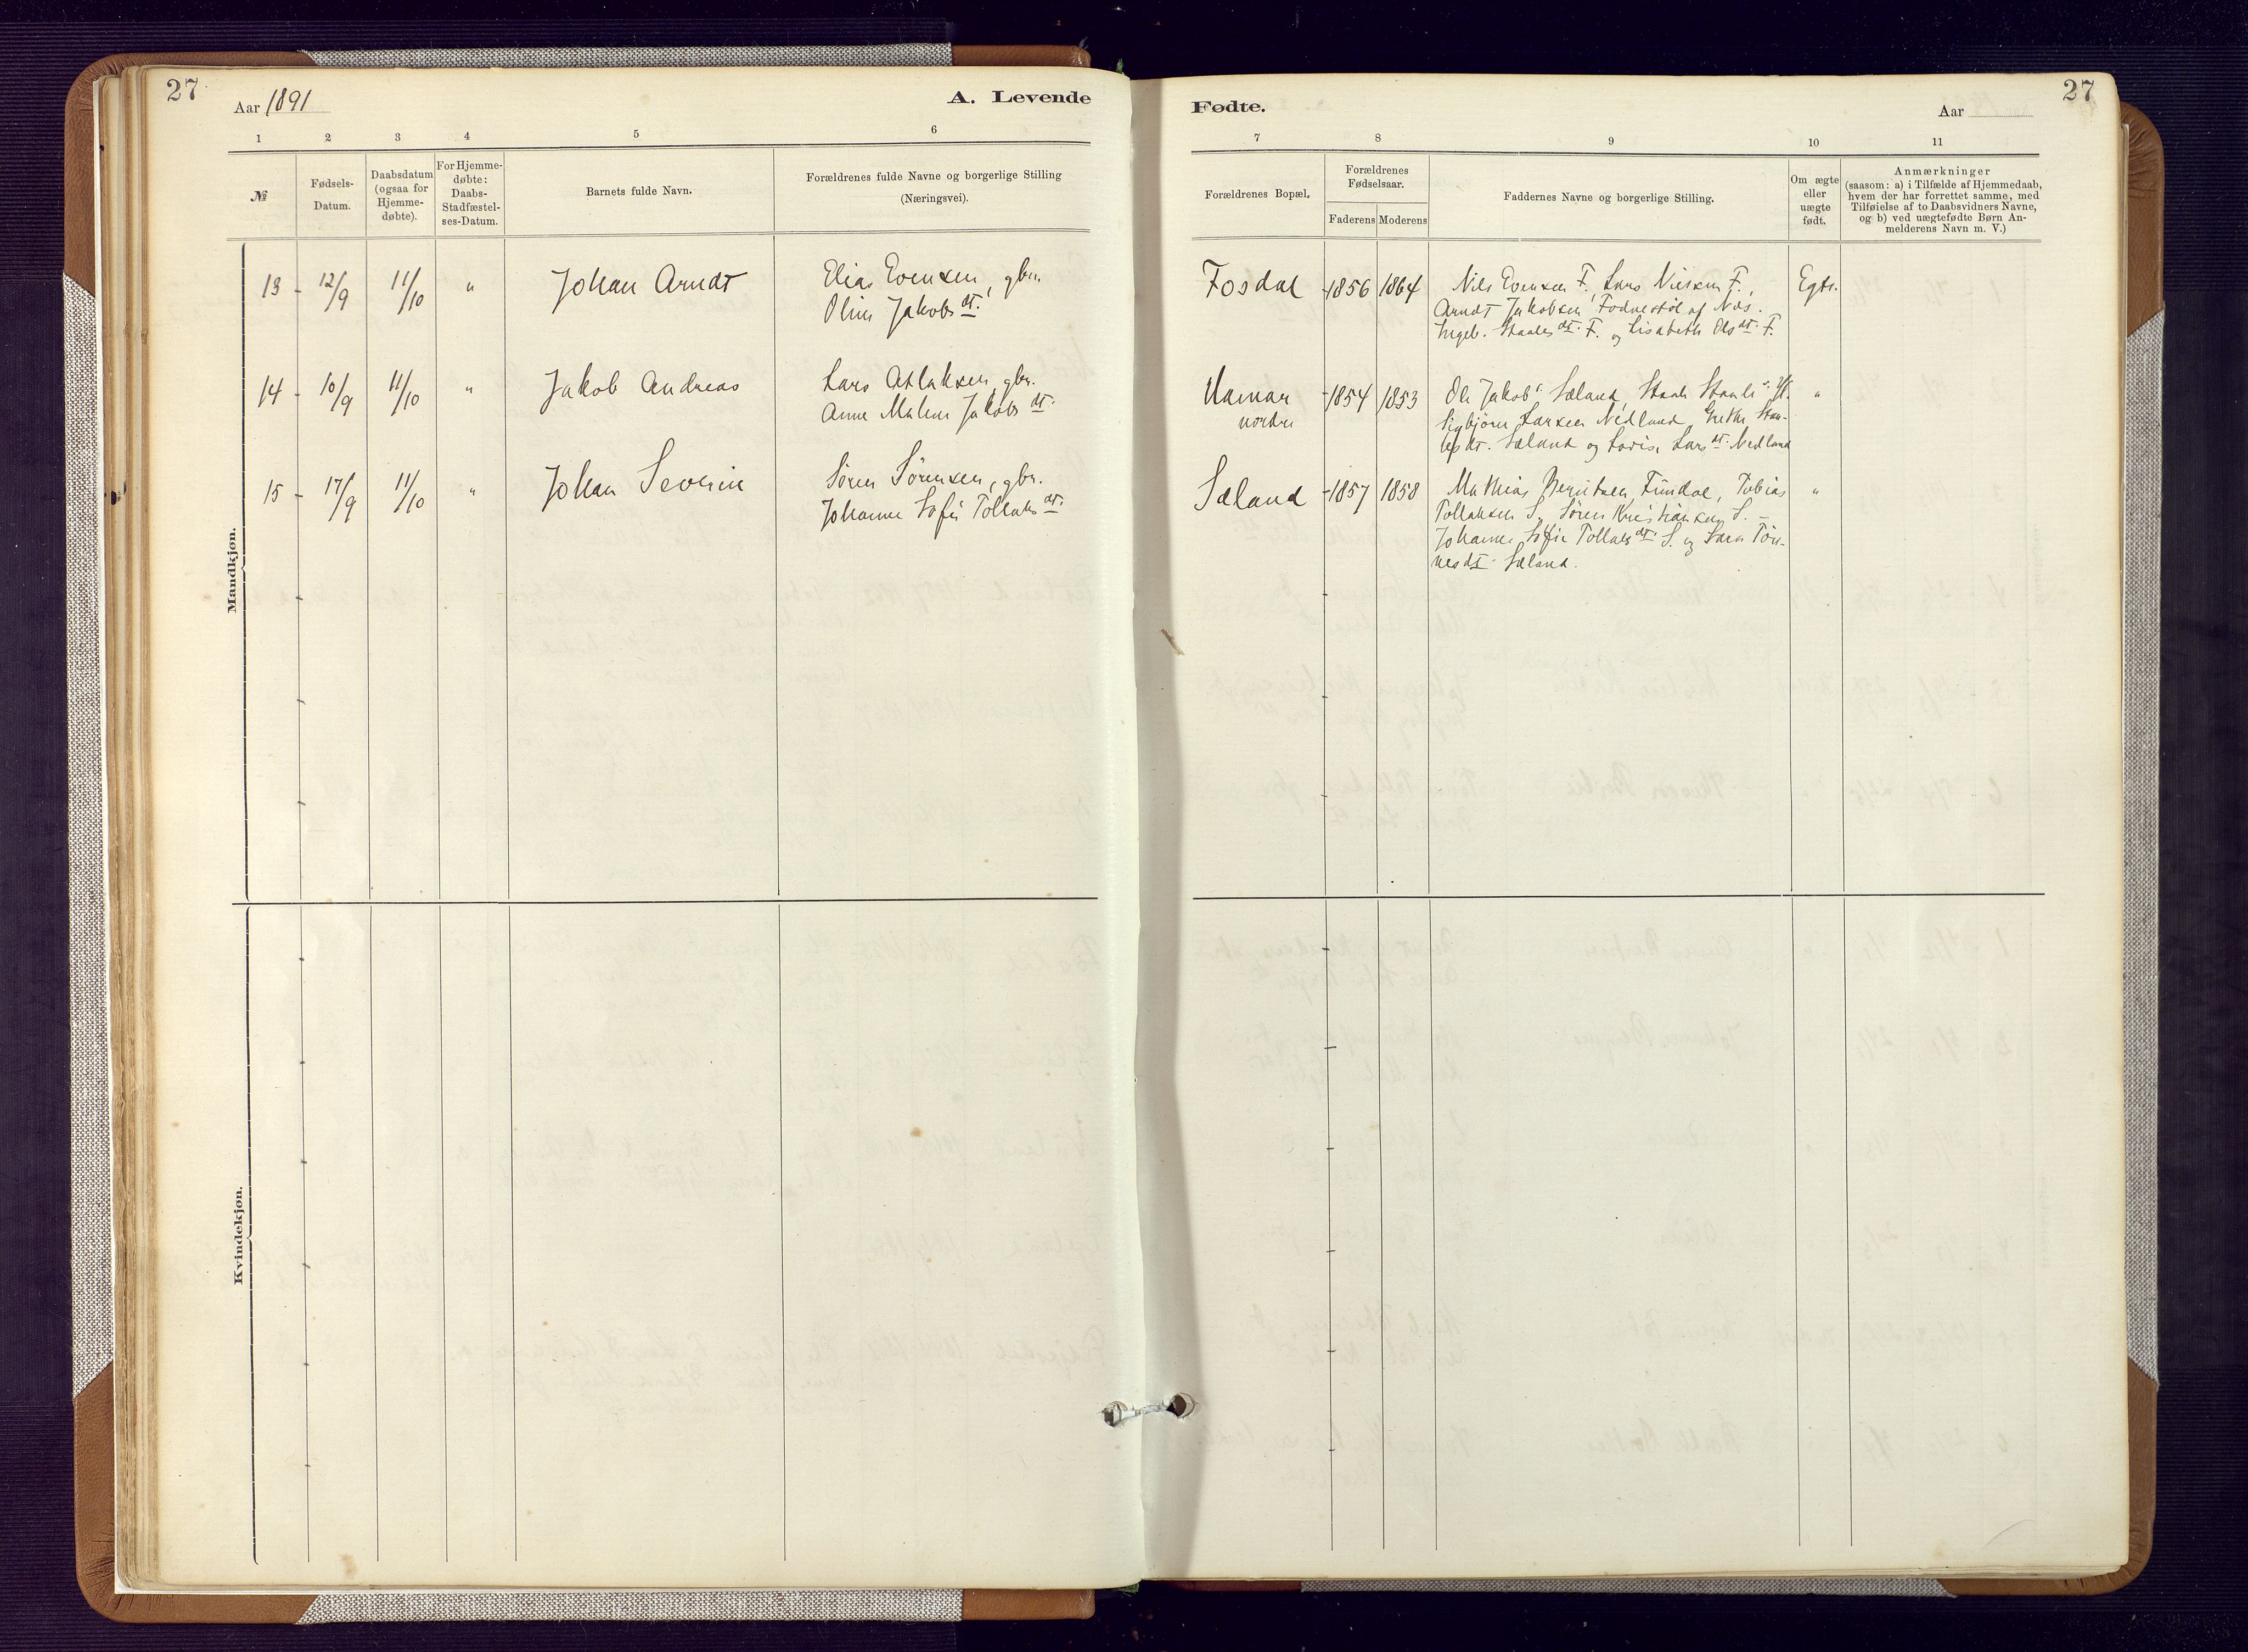 27
Aar 1891
A. Levende
1 2 3 4 5 6
№
Fødsels-
Datum.
Daabsdatum
(ogsaa for
Hjemme-
døbte).
For Hjemme-
døbte:
Daabs-
Stadfæstel-
ses-Datum.
Barnets fulde Navn.
Forældrenes fulde Navne og borgerlige Stilling
(Næringsvei).
Mandkjøn.
13 - 12/9 11/10 " Johan Arndt Elias Evensen, gbr.
Oline Jakobsdt.
14 - 10/9 11/10 " Jakob Andreas Lars Atlaksen, gbr.
Anne Malene Jakobsdt.
15 - 17/9 11/10 " Johan Severin Søren Sørensen, gbr.
Johanne Sofie Tollaksdt.
Kvindekjøn.
Fødte.
Aar
27
7 8 9 10 11
Forældrenes Bopæl.
Forældrenes
Fødselsaar.
Faderens Moderens
Faddernes Navne og borgerlige Stilling.
Om ægte
eller
uægte
født.
Anmærkninger
(saasom: a) i Tilfælde af Hjemmedaab,
hvem der har forrettet samme, med
Tilføielse af to Daabsvidners Navne,
og b) ved uægtefødte Børn An-
melderens Navn m. V.)
Fosdal - 1856 1864 Nils Evensen F., Lars Nielsen F., Egte.
Arndt Jakobsen, Fodnestøl af Næs.
Ingeb. Staalesdt. F. og Lisabeth Olsdt. F.
Hamar - 1854 1853 Ole Jakobs. Sæland, Staale Staales. "
nordre Sigbjørn Larsen Nedland, Grethe Staa-
lesdt. Sæland og Lovise Larsdt. Nedland
Sæland - 1857 1858 Mathias Berntsen, Tobias "
Tollaksen S., Søren Kristiansen S. –
Johanne Sofie Tollaksdt. S. og Sara Tøn-
nesdt. Sæland.